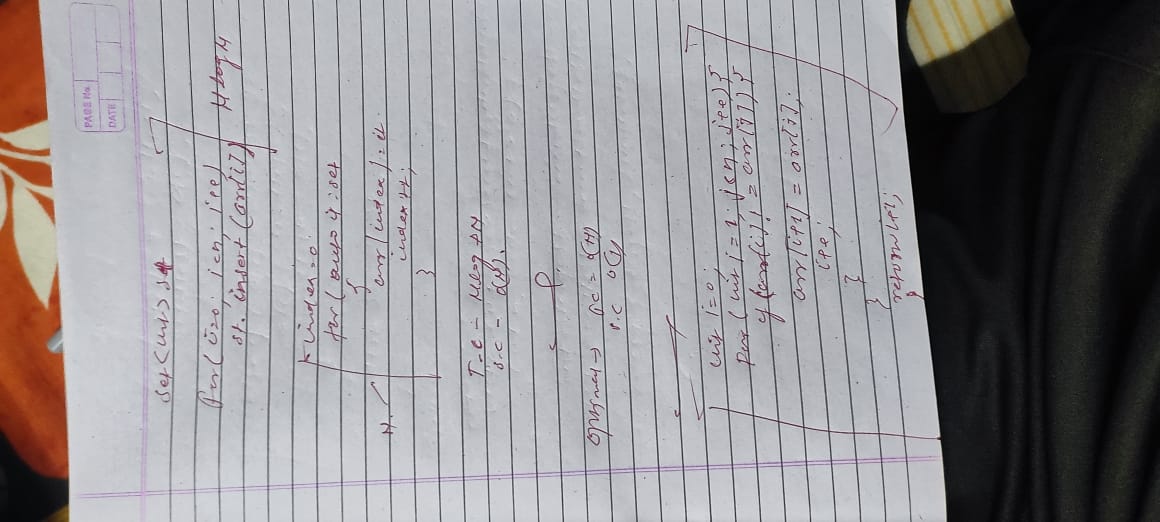 PAGE No.
DATE
set<int> st
for(i=0; i<n; i++)
st. insert (arr[i])
N log N
index=0
for (auto it : set
{
arr[index] = it.
index++;
}
N.
T.C - N log N + N
S.C - O(N).
optimal → T.C = O(N)
S.C O(1)
int i=0;
for (int j=1; j<n; j++) {
if (arr[i] != arr[j]) {
arr[i+1] = arr[j];
i++;
}
}
return i+1;